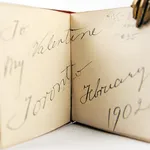 To
My Valentine
Toronto
February
190